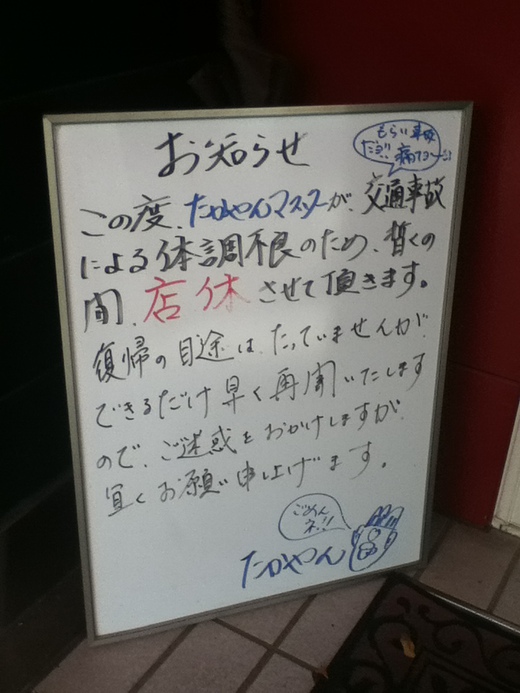 お知らせ
もらい事故
だヨ!! 痛てョ〜!!
この度、たかやんマスターが、交通事故
による体調不良のため、暫くの
間、店休させて頂きます。
復帰の目途は、たっていませんが、
できるだけ早く再開いたします
ので、ご迷惑をおかけしますが、
宜くお願い申し上げます。
ごめん
ネ!!
たかやん